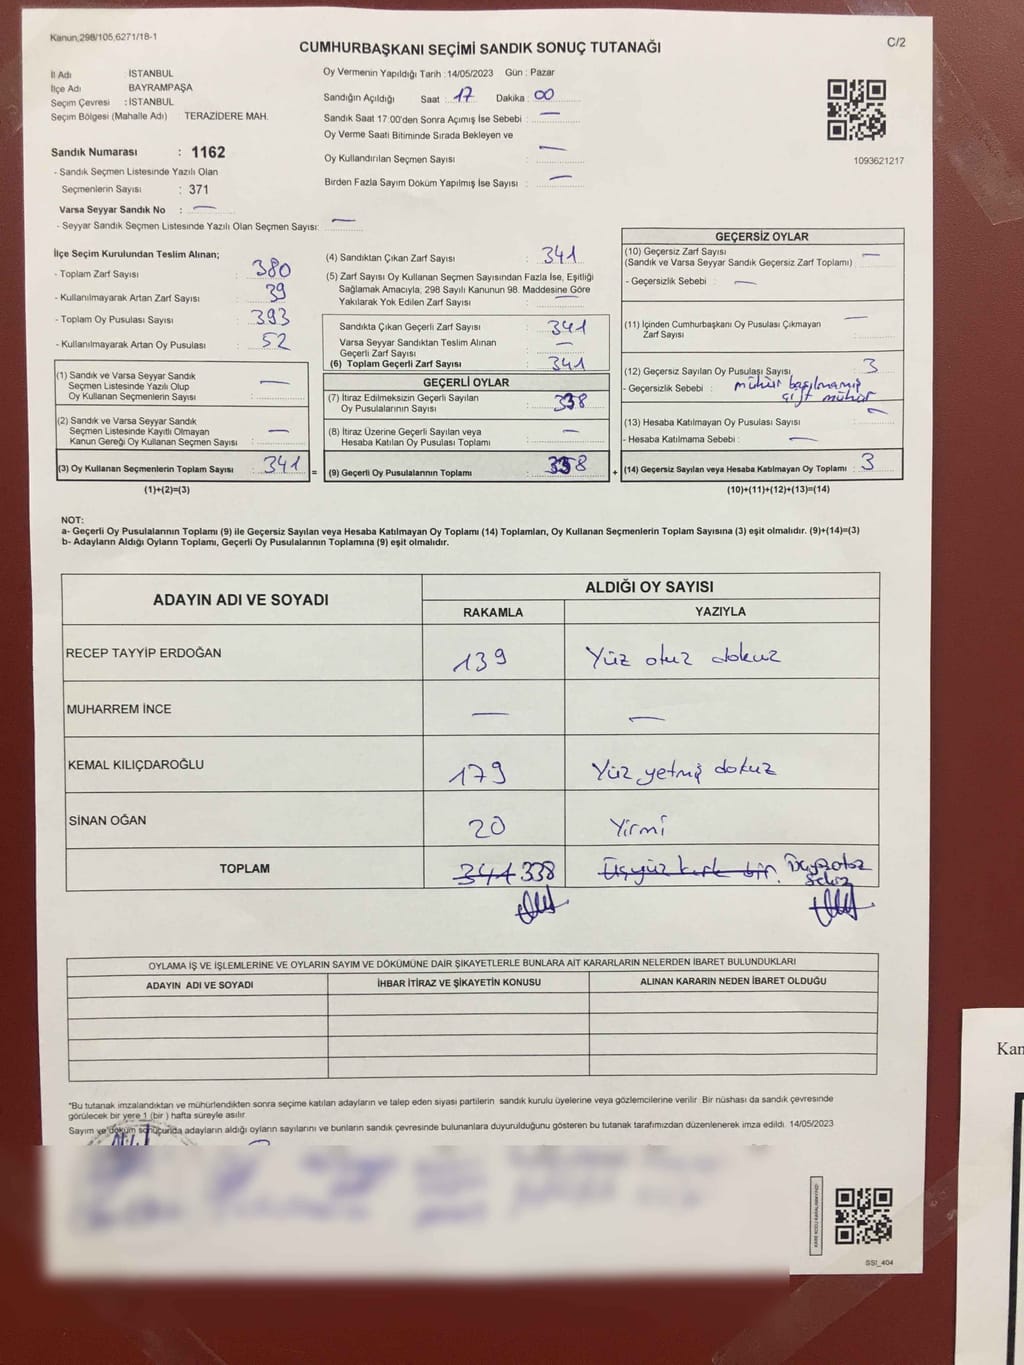 Kanun,298/105,6271/18-1
C/2
CUMHURBAŞKANI SEÇİMİ SANDIK SONUÇ TUTANAĞI
İl Adı : İSTANBUL
İlçe Adı BAYRAMPAŞA
Seçim Çevresi : İSTANBUL
Seçim Bölgesi (Mahalle Adı) TERAZİDERE MAH.
Sandık Numarası : 1162
- Sandık Seçmen Listesinde Yazılı Olan
Seçmenlerin Sayısı : 371
Varsa Seyyar Sandık No : —
- Seyyar Sandık Seçmen Listesinde Yazılı Olan Seçmen Sayısı: —
Oy Vermenin Yapıldığı Tarih : 14/05/2023 Gün : Pazar
Sandığın Açıldığı Saat : 17 Dakika : 00
Sandık Saat 17:00'den Sonra Açımış İse Sebebi : —
Oy Verme Saati Bitiminde Sırada Bekleyen ve
Oy Kullandırılan Seçmen Sayısı : —
Birden Fazla Sayım Döküm Yapılmış İse Sayısı : —
1093621217
İlçe Seçim Kurulundan Teslim Alınan;
- Toplam Zarf Sayısı : 380
- Kullanılmayarak Artan Zarf Sayısı : 39
- Toplam Oy Pusulası Sayısı : 393
- Kullanılmayarak Artan Oy Pusulası : 52
(1) Sandık ve Varsa Seyyar Sandık
Seçmen Listesinde Yazılı Olup
Oy Kullanan Seçmenlerin Sayısı : —
(2) Sandık ve Varsa Seyyar Sandık
Seçmen Listesinde Kayıtlı Olmayan
Kanun Gereği Oy Kullanan Seçmen Sayısı : —
(3) Oy Kullanan Seçmenlerin Toplam Sayısı : 341 =
(1)+(2)=(3)
(4) Sandıktan Çıkan Zarf Sayısı : 341
(5) Zarf Sayısı Oy Kullanan Seçmen Sayısından Fazla İse, Eşitliği
Sağlamak Amacıyla, 298 Sayılı Kanunun 98. Maddesine Göre
Yakılarak Yok Edilen Zarf Sayısı : —
Sandıkta Çıkan Geçerli Zarf Sayısı : 341
Varsa Seyyar Sandıktan Teslim Alınan
Geçerli Zarf Sayısı : —
(6) Toplam Geçerli Zarf Sayısı : 341
GEÇERLİ OYLAR
(7) İtiraz Edilmeksizin Geçerli Sayılan
Oy Pusulalarının Sayısı : 338
(8) İtiraz Üzerine Geçerli Sayılan veya
Hesaba Katılan Oy Pusulası Toplamı : —
(9) Geçerli Oy Pusulalarının Toplamı : 338 +
GEÇERSİZ OYLAR
(10) Geçersiz Zarf Sayısı : —
(Sandık ve Varsa Seyyar Sandık Geçersiz Zarf Toplamı)
- Geçersizlik Sebebi : —
(11) İçinden Cumhurbaşkanı Oy Pusulası Çıkmayan
Zarf Sayısı : —
(12) Geçersiz Sayılan Oy Pusulası Sayısı : 3
- Geçersizlik Sebebi : mühür basılmamış
çift mühür
(13) Hesaba Katılmayan Oy Pusulası Sayısı : —
- Hesaba Katılmama Sebebi : —
(14) Geçersiz Sayılan veya Hesaba Katılmayan Oy Toplamı : 3
(10)+(11)+(12)+(13)=(14)
NOT:
a- Geçerli Oy Pusulalarının Toplamı (9) ile Geçersiz Sayılan veya Hesaba Katılmayan Oy Toplamı (14) Toplamları, Oy Kullanan Seçmenlerin Toplam Sayısına (3) eşit olmalıdır. (9)+(14)=(3)
b- Adayların Aldığı Oyların Toplamı, Geçerli Oy Pusulalarının Toplamına (9) eşit olmalıdır.
ADAYIN ADI VE SOYADI
ALDIĞI OY SAYISI
RAKAMLA YAZIYLA
RECEP TAYYİP ERDOĞAN 139 Yüz otuz dokuz
MUHARREM İNCE — —
KEMAL KILIÇDAROĞLU 179 Yüz yetmiş dokuz
SİNAN OĞAN 20 Yirmi
TOPLAM 341 338 Üçyüz kırk bir. Üçyüzotuz
sekiz
OYLAMA İŞ VE İŞLEMLERİNE VE OYLARIN SAYIM VE DÖKÜMÜNE DAİR ŞİKAYETLERLE BUNLARA AİT KARARLARIN NELERDEN İBARET BULUNDUKLARI
ADAYIN ADI VE SOYADI İHBAR İTİRAZ VE ŞİKAYETİN KONUSU ALINAN KARARIN NEDEN İBARET OLDUĞU
*Bu tutanak imzalandıktan ve mühürlendikten sonra seçime katılan adayların ve talep eden siyasi partilerin sandık kurulu üyelerine veya gözlemcilerine verilir. Bir nüshası da sandık çevresinde
görülecek bir yere 1 (bir ) hafta süreyle asılır.
Sayım ve döküm sonucunda adayların aldığı oyların sayılarını ve bunların sandık çevresinde bulunanlara duyurulduğunu gösteren bu tutanak tarafımızdan düzenlenerek imza edildi. 14/05/2023
SSI_404
Kan